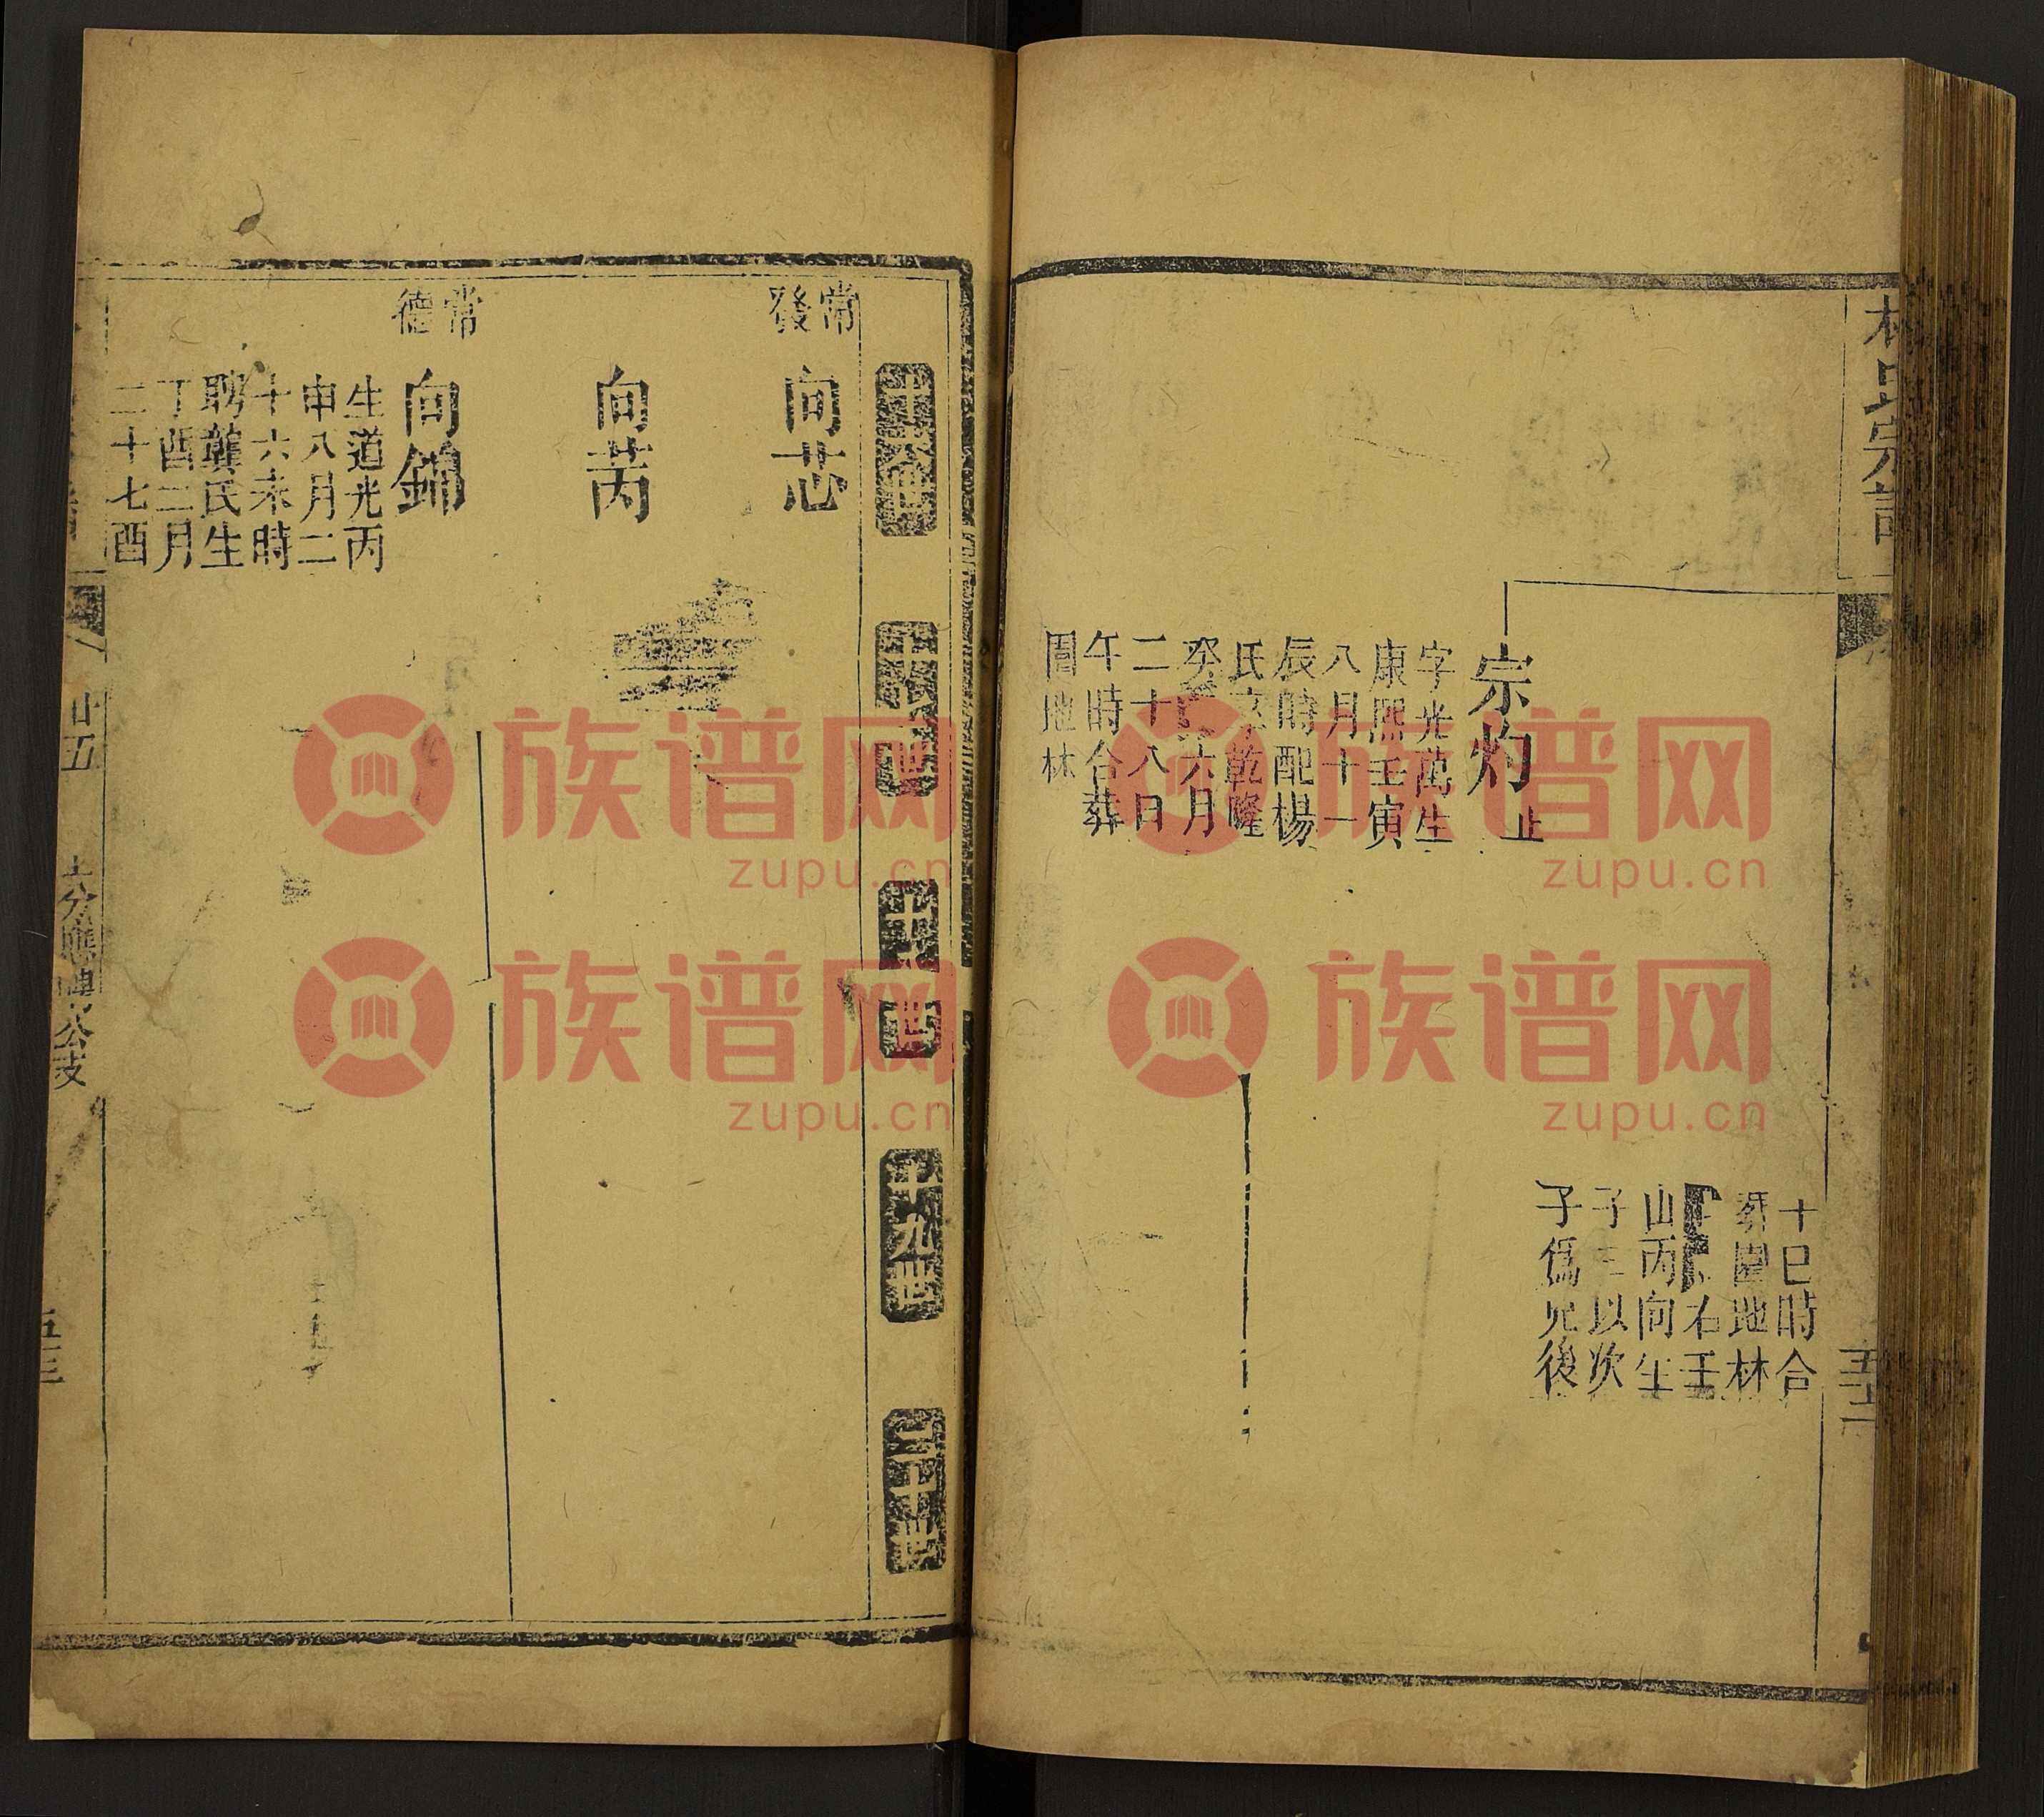 宗灼止
字光萬生
康熙壬寅
八月十一
辰時配楊
氏 乾隆
癸 六月
二十八日
午時合葬
周地林
十巳時合
葬園地林
右壬
山丙向生
子三以次
子爲兄後
五十二
世
十七世
十八世
十九世
二十世
常發
向芯
向芮
常德
向錦
生道光丙
申八月二
十六未時
聘龔氏生
丁酉二月
二十七酉
廿五
公支
五十三
族谱网
zupu.cn
族谱网
zupu.cn
族谱网
zupu.cn
族谱网
zupu.cn